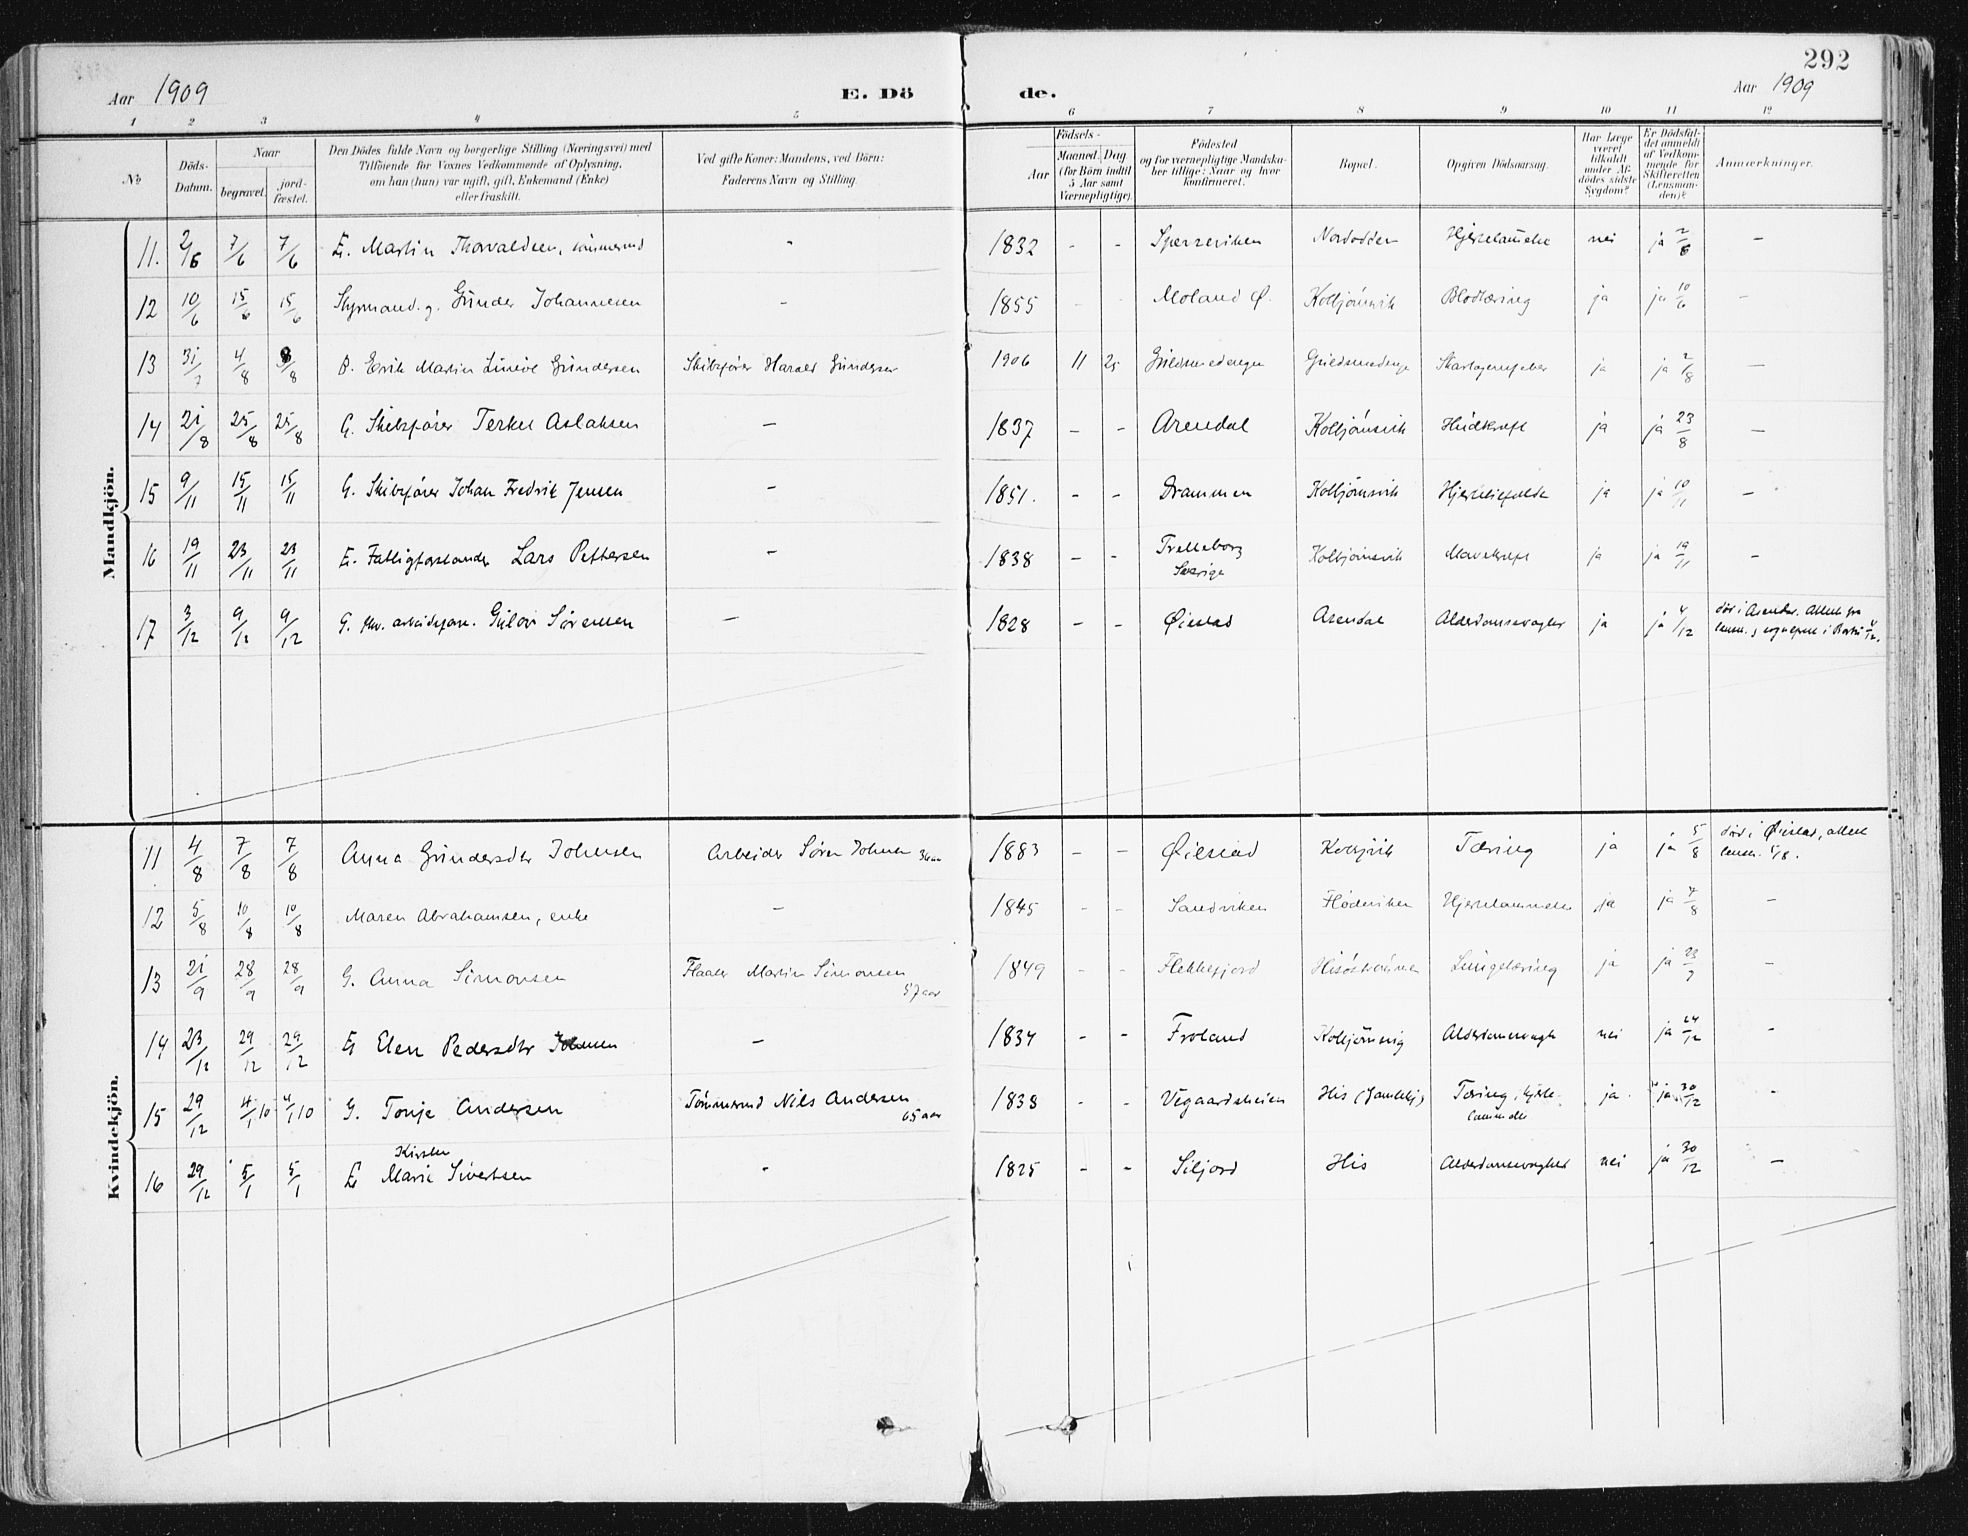 292
Aar 1909 E. Dö de. Aar 1909
1 2 3 4 5 6 7 8 9 10 11 12
No
Döds-Datum.
Naar
begravet.
jord-fæstet.
Den Dödes fulde Navn og borgerlige Stilling (Næringsvei) med
Tilföiende for Voxnes Vedkommende af Oplysning,
om han (hun) var ugift, gift, Enkemand (Enke)
eller fraskilt.
Ved gifte Koner: Mandens, ved Börn:
Faderens Navn og Stilling.
Födsels-
Aar
Maaned. Dag
(for Börn indtil
5 Aar samt
Værnepligtige).
Födested
og for værnepligtige Mandska-
ber tillige: Naar og hvor
konfirmeret.
Bopæl.
Opgiven Dödsaarsag.
Har Læge
været
tilkaldt
under Af-
dödes sidste
Sygdom?
Er Dödsfal-
det anmeldt
af Vedkom-
mende for
Skifteretten
(Lensman-
den)?
Anmærkninger.
Mandkjön.
11. 2/6 7/6 7/6 E. Martin Thorvaldsen, tömmermd - 1832 - - Nordodden nei ja 2/6 -
12 10/6 15/6 15/6 Styrmand. g. Gunder Johannesen - 1855 - - Moland Ø. Kolbjörnsvik Blodtæring ja ja 10/6 -
13 31/7 4/8 8/8 B. Erik Martin Gundersen Skibsfører Harald Gundersen 1906 11 25 Guldsmedengen Guldsmedenge Skarlagensfeber ja ja 2/8 -
14 21/8 25/8 25/8 G. Skibsfører Terkel Aslaksen - 1837 - - Arendal Kolbjörnsvik Hudkreft ja ja 23/8 -
15 9/11 15/11 15/11 G. Skibsfører Johan Fredrik Jensen - 1851. - - Drammen Kolbjörnsvik ja ja 10/11 -
16 19/11 23/11 23/11 E. Fattigforstander Lars Pettersen - 1838 - - Trelleborg Sverige Kolbjörnsvik Mavekreft ja ja 19/11 -
17 3/12 9/12 9/12 G. arbeidsfor. Gulov Sørensen - 1828 - - Øiestad Arendal Alderdomssvaghet ja ja 4/12 död i Arendal. Attest fra
Kvindekjön.
11 4/8 7/8 7/8 Anna Gundersdtr Johnsen Arbeider Søren Johnsen 36 aar 1883 - - Øiestad Kolbjvik Tæring ja ja 5/8 død i Øiestad, attest
lensm. 5/8.
12 5/8 10/8 10/8 Maren Abrahamsen, enke - 1845 - - Sandviken Flødeviken Hjertelammelse ja ja 7/8 -
13 21/9 28/9 28/9 G. Anna Simonsen Martin Simonsen 57 aar 1849 - - Flekkefjord Lungetæring ja ja -
14 23/12 29/12 29/12 E Elen Pedersdtr Johnsen - 1834 - - Froland Kolbjörnsvig Alderdomssvagh nei ja 24/12 -
15 29/12 4/1 10 4/1 10 G. Tonje Andersen Tömmermd Nils Andersen 65 aar 1838 - - Vegaardsheien His Tæring, hjerte-
lammelse ja. ja 30/12 -
16 29/12 5/1 5/1 E Kirsten Marie Sivertsen - 1825 - - Siljord His Alderdomssvaghed nei ja 30/12 -